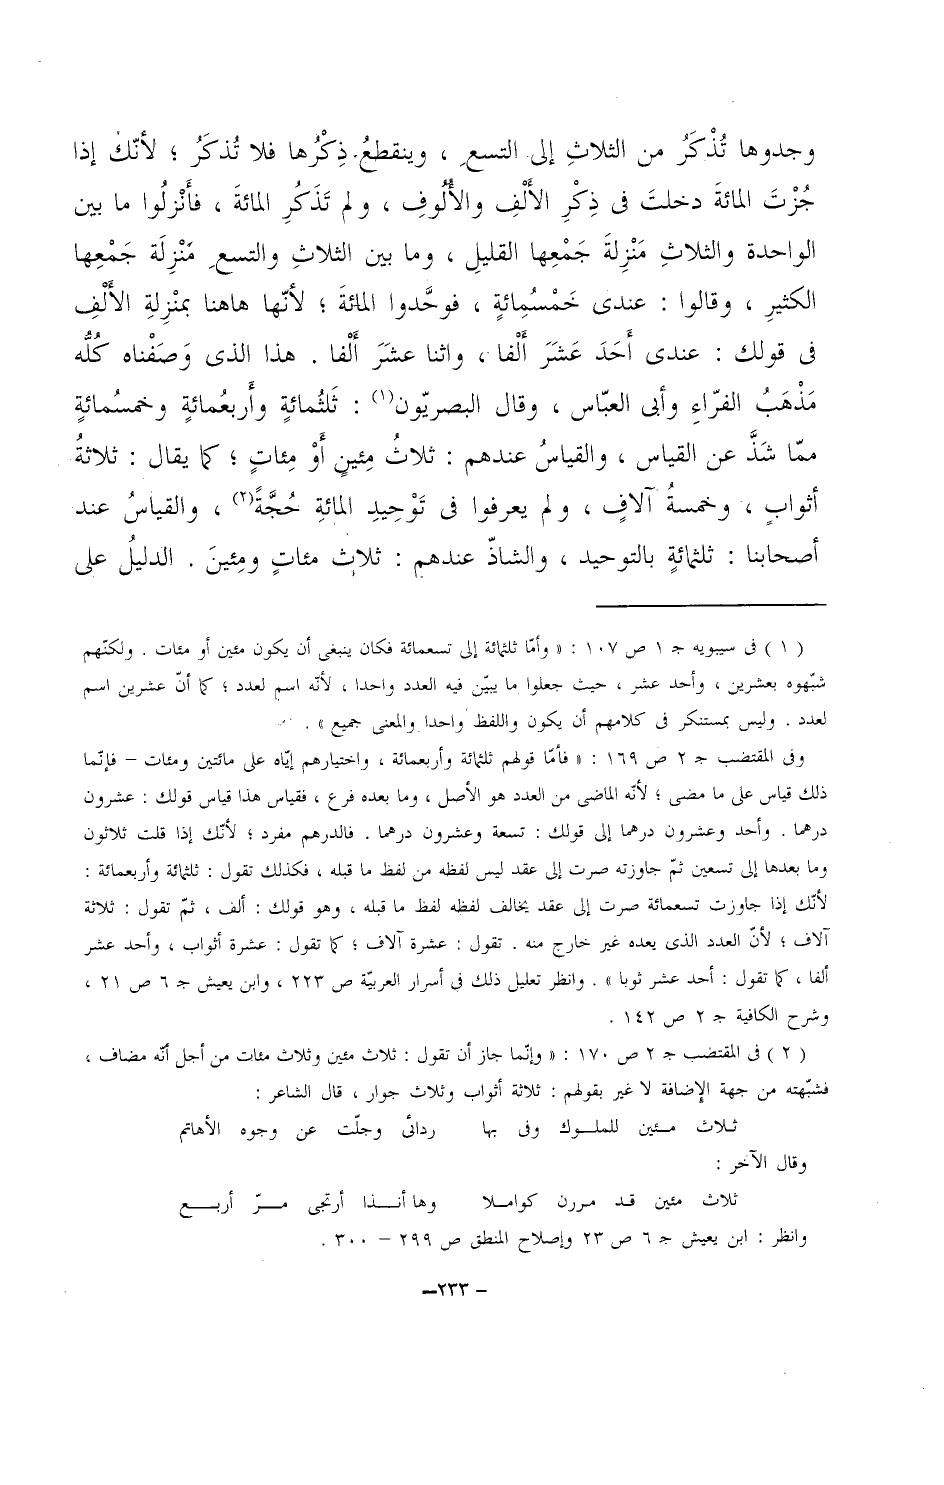 وجدوها تُذْكَرُ من الثلاثِ إلى التسعِ ، وينقطعُ ذِكْرُها فلا تُذكَرُ ؛ لأنّك إذا
جُزْتَ المائةَ دخلتَ فى ذِكْرِ الأَلْفِ والأُلُوفِ ، ولم تَذَكُرِ المائةَ ، فأَنْزلُوا ما بين
الواحدة والثلاثِ مَنْزِلةَ جَمْعِها القليلِ ، وما بين الثلاثِ والتسعِ مَنْزِلَة جَمْعِها
الكثيرِ ، وقالوا : عندى خَمْسُمِائةٍ ، فوحَّدوا المائةَ ؛ لأنّها هاهنا بمنْزلةِ الأَلْفِ
فى قولك : عندى أَحَدَ عَشَرَ أَلْفا ، واثنا عشَرَ أَلْفا . هذا الذى وَصَفْناه كُلُّه
مَذْهَبُ الفرّاءِ وأبى العبّاس ، وقال البصريّون(١) : ثَلثُمائةٍ وأَربعُمائةٍ وخمسُمائةٍ
ممّا شَذَّ عن القياس ، والقياسُ عندهم : ثلاثُ مِئينٍ أَوْ مِئاتٍ ؛ كما يقال : ثلاثةُ
أثوابٍ ، وخمسةُ آلافٍ ، ولم يعرفوا فى تَوْحِيدِ المائةِ حُجَّةً(٢) ، والقياسُ عند
أصحابنا : ثلثمائةٍ بالتوحيد ، والشاذّ عندهم : ثلاث مئاتٍ ومِئينَ . الدليلُ على
( ١ ) فى سيبويه جـ ١ ص ١٠٧ : « وأمّا ثلثمائة إلى تسعمائة فكان ينبغى أن يكون مئين أو مئات . ولكنّهم
شبّهوه بعشرين ، وأحد عشر ، حيث جعلوا ما يبيّن فيه العدد واحدا ، لأنّه اسم لعدد ؛ كما أنّ عشرين اسم
لعدد . وليس بمستنكر فى كلامهم أن يكون واللفظ واحدا والمعنى جميع » .
وفى المقتضب جـ ٢ ص ١٦٩ : « فأمّا قولهم ثلثمائة وأربعمائة ، واختيارهم إيّاه على مائتين ومئات – فإنّما
ذلك قياس على ما مضى ؛ لأنّه الماضى من العدد هو الأصل ، وما بعده فرع ، فقياس هذا قياس قولك : عشرون
درهما . وأحد وعشرون درهما إلى قولك : تسعة وعشرون درهما . فالدرهم مفرد ؛ لأنّك إذا قلت ثلاثون
وما بعدها إلى تسعين ثمّ جاوزته صرت إلى عقد ليس لفظه من لفظ ما قبله ، فكذلك تقول : ثلثمائة وأربعمائة :
لأنّك إذا جاوزت تسعمائة صرت إلى عقد يخالف لفظه لفظ ما قبله ، وهو قولك : ألف ، ثمّ تقول : ثلاثة
آلاف ؛ لأنّ العدد الذى يعده غير خارج منه . تقول : عشرة آلاف ؛ كما تقول : عشرة أثواب ، وأحد عشر
ألفا ، كما تقول : أحد عشر ثوبا » . وانظر تعليل ذلك فى أسرار العربيّة ص ٢٢٣ ، وابن يعيش جـ ٦ ص ٢١ ،
وشرح الكافية جـ ٢ ص ١٤٢ .
( ٢ ) فى المقتضب جـ ٢ ص ١٧٠ : « وإنّما جاز أن تقول : ثلاث مئين وثلاث مئات من أجل أنّه مضاف ،
فشبّهته من جهة الإضافة لا غير بقولهم : ثلاثة أثواب وثلاث جوار ، قال الشاعر :
ثـلاث مـئين للملـوك وفى بها ردائى وجلّت عن وجوه الأهاتم
وقال الآخر :
ثلاث مئين قد مررن كوامـلا وها أنـــذا أرتجى مــرّ أربــع
وانظر : ابن يعيش جـ ٦ ص ٢٣ وإصلاح المنطق ص ٢٩٩ – ٣٠٠ .
– ٢٣٣–